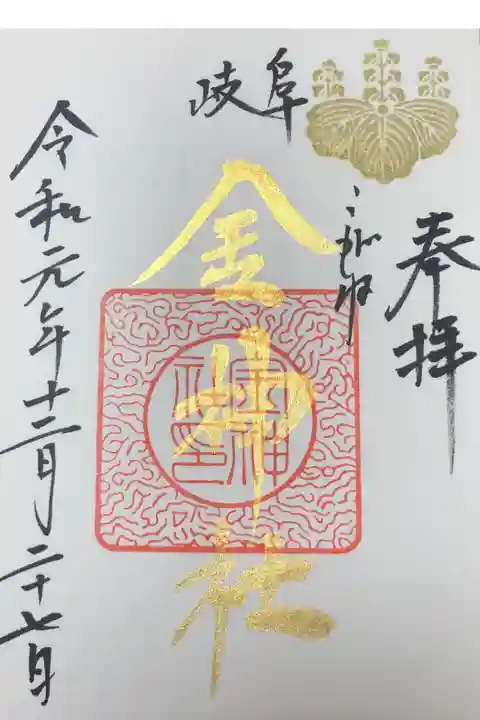 奉拝
岐阜
金神社
金神社印
令和元年十二月二十七日